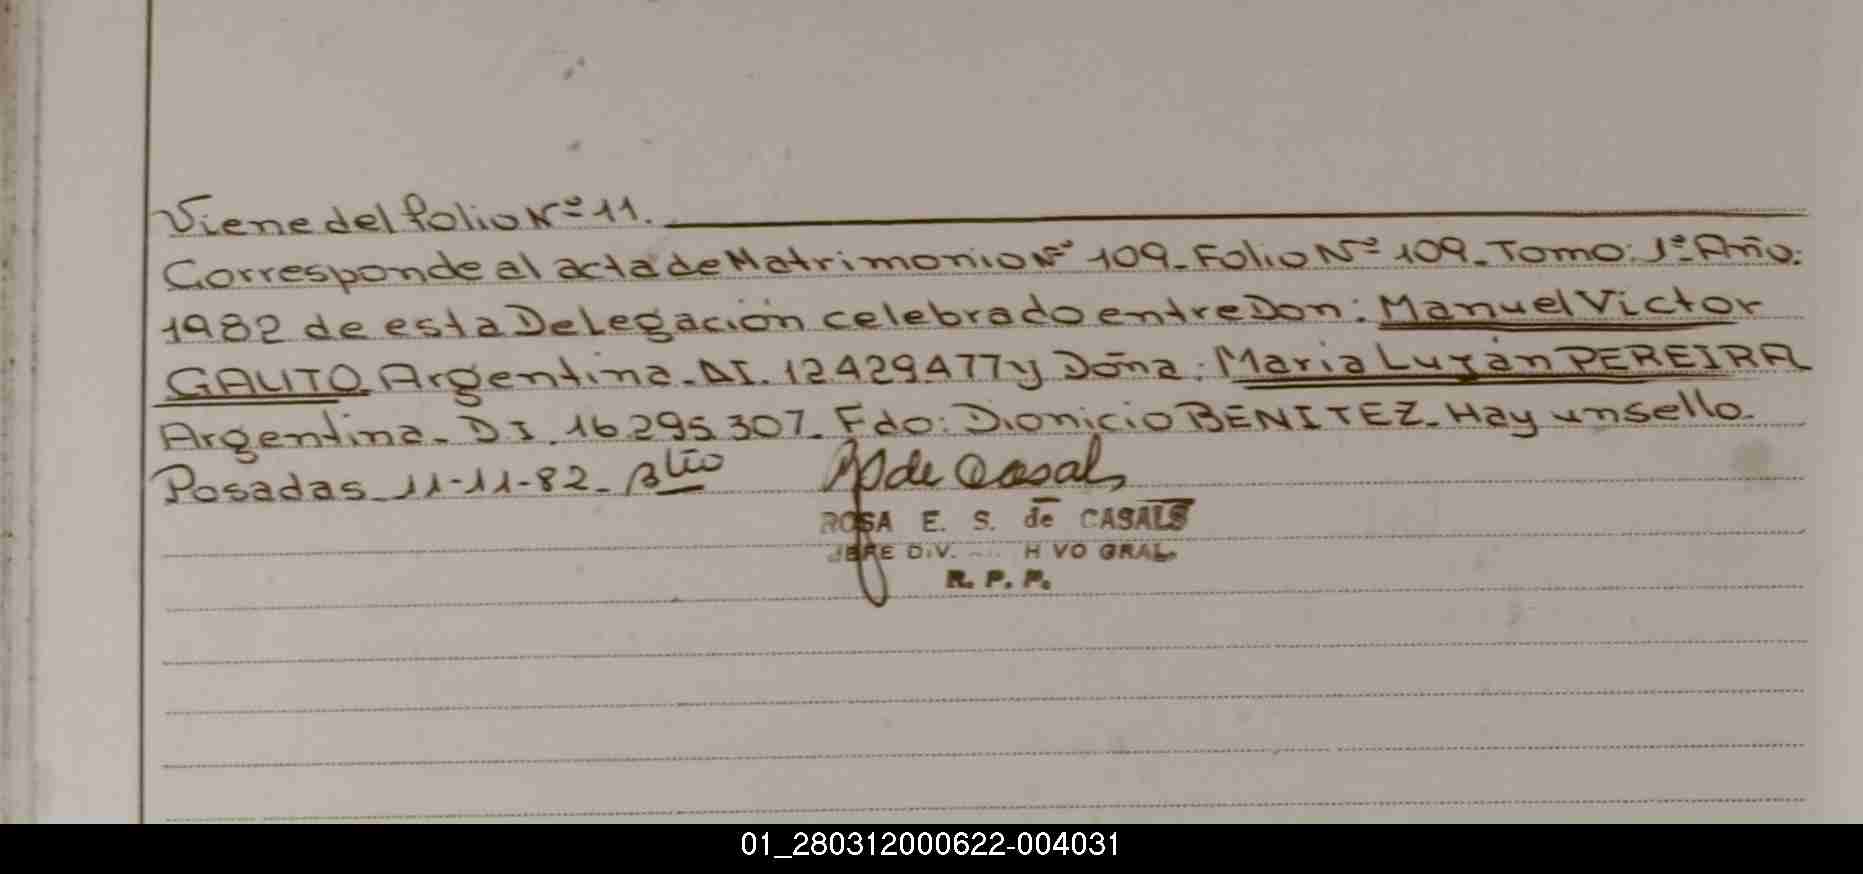 Viene del folio Nº 11.
Corresponde al acta de Matrimonio Nº 109_ Folio Nº 109_ Tomo: 1º_ Año:
1982 de esta Delegación celebrado entre Don: Manuel Victor
GAUTO Argentina_ DI. 12429477 y Doña: Maria Luján PEREIRA
Argentina_ DI. 16295307_ Fdo: Dionicio BENITEZ_ Hay un sello_
Posadas_ 11-11-82_
de Casals
ROSA E. S. de CASALS
JEFE DIV. GRAL.
R. P. P.
01_280312000622-004031